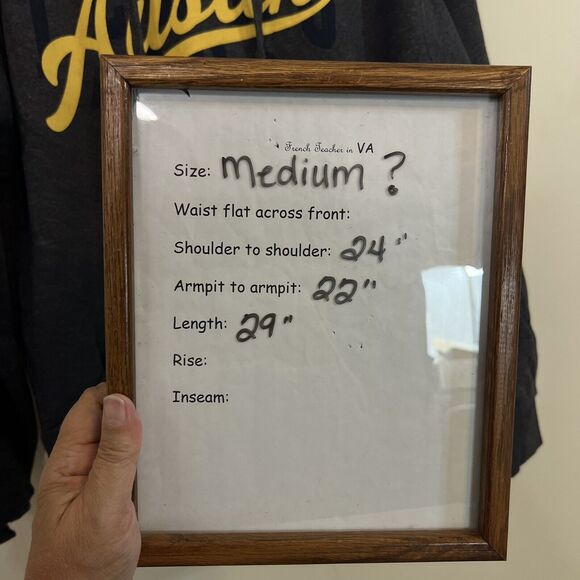 Austin
French Teacher in VA
Size: Medium ?
Waist flat across front:
Shoulder to shoulder: 24"
Armpit to armpit: 22"
Length: 29"
Rise:
Inseam: